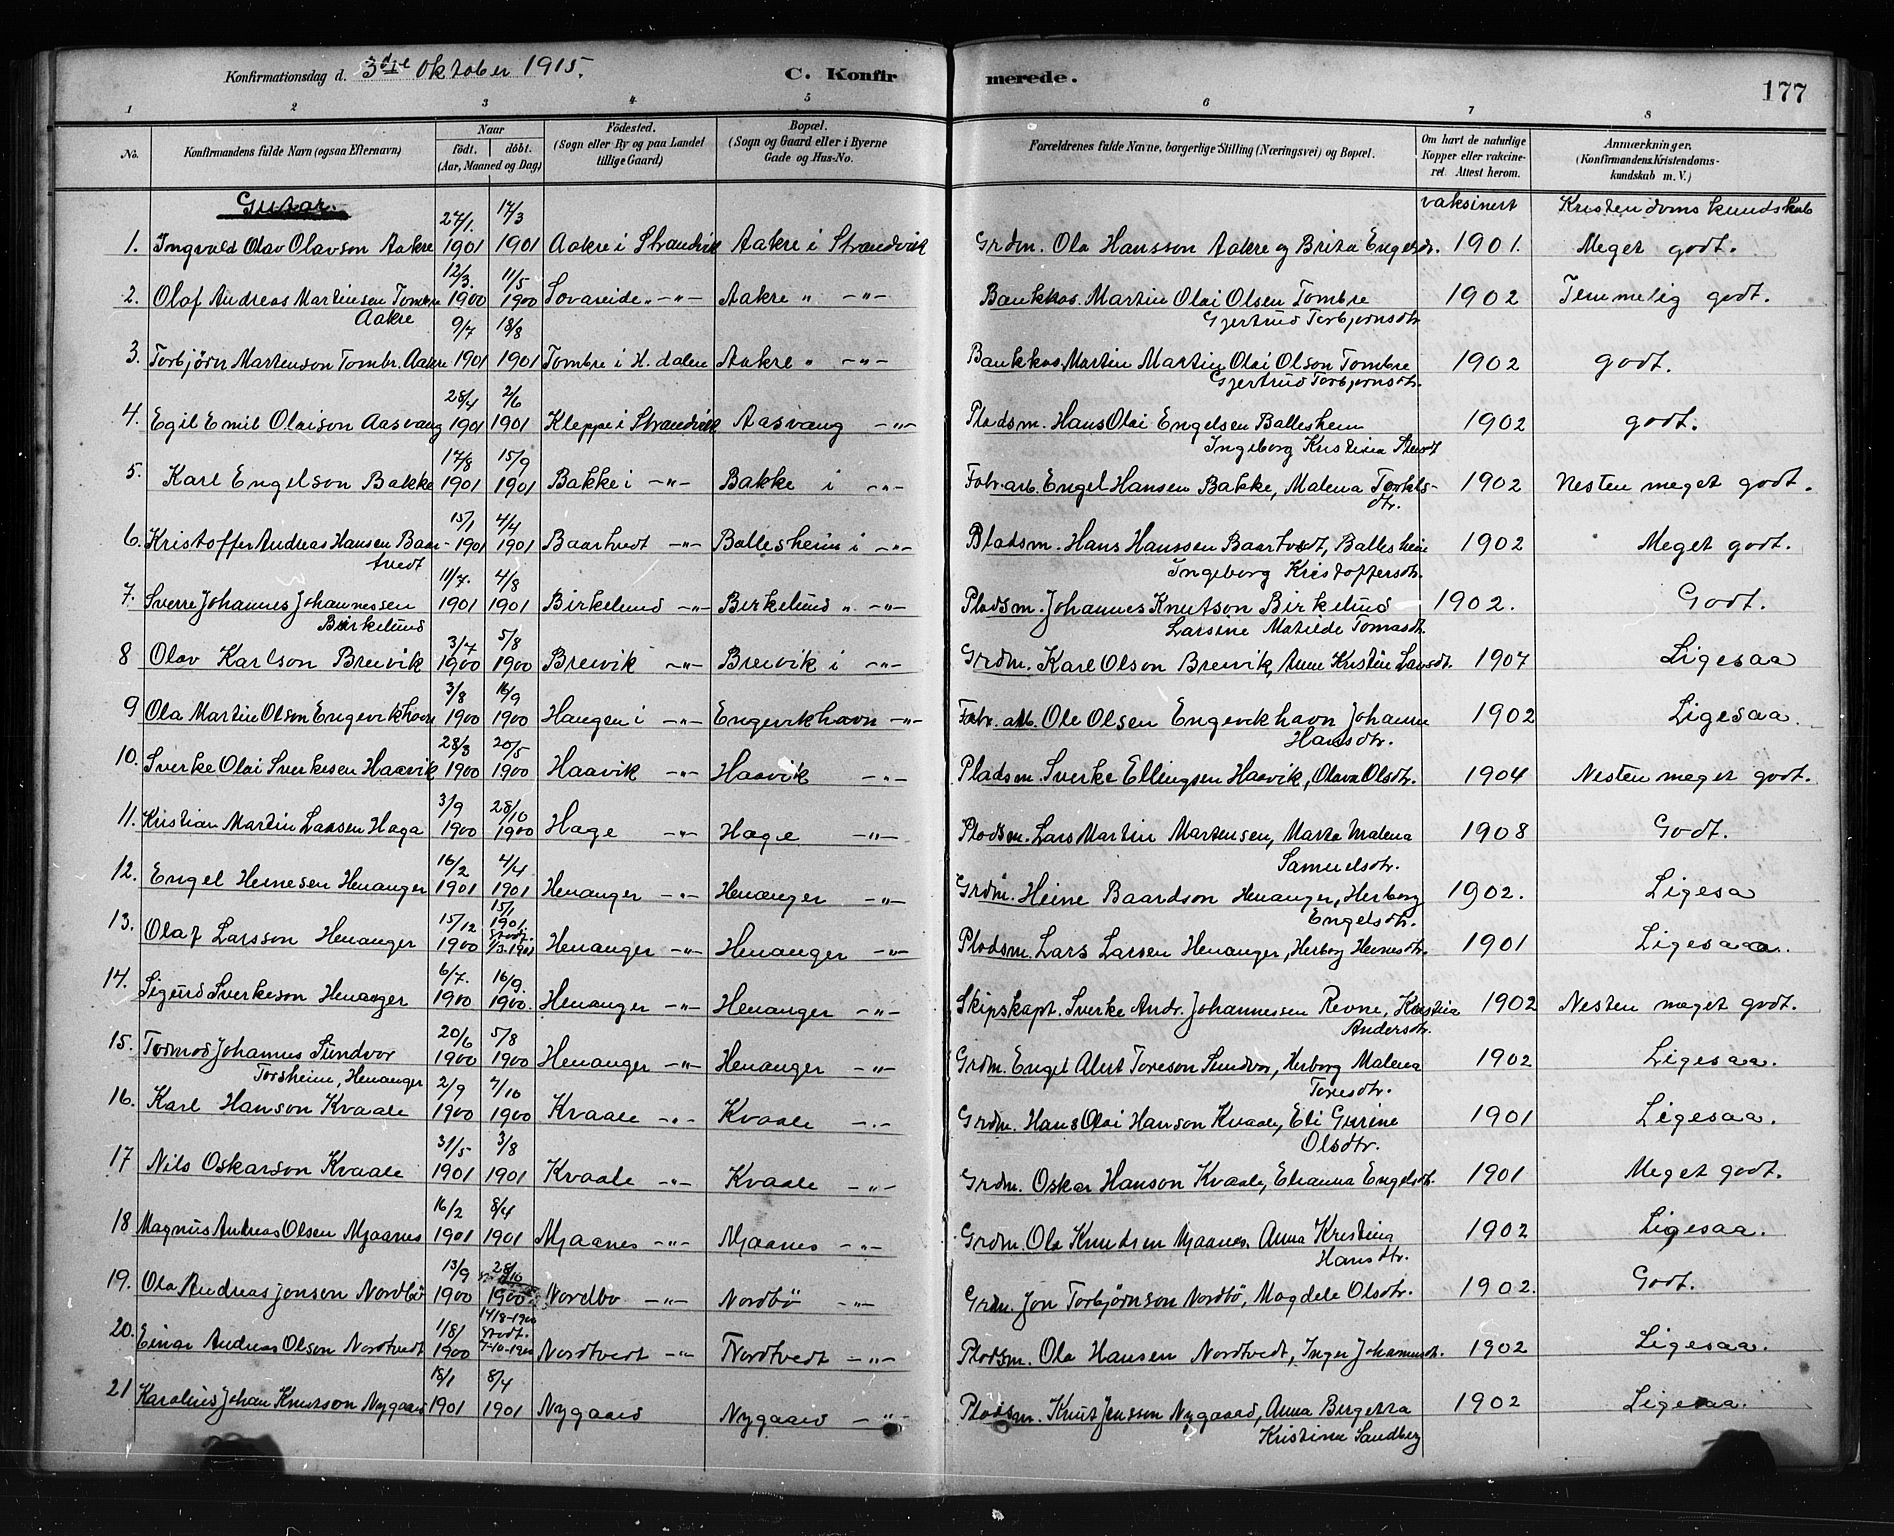 Konfirmationsdag d. 3die Oktober 1915. C. Konfirmerede. 177
1 2 3 4 5 6 7 8
No. Konfirmandens fulde Navn (ogsaa Efternavn) Naar födt. döbt. (Aar, Maaned og Dag) Födested. (Sogn eller By og paa Landet tillige Gaard) Bopæl. (Sogn og Gaard eller i Byerne Gade og Hus-No. Forældrenes fulde Navne, borgerlige Stilling (Næringsvei) og Bopæl. Om havt de naturlige Kopper eller vakcineret. Attest herom. Anmærkninger. (Konfirmandens Kristendomskundskab m. V.)
Gutar. vaksinert Kristendomskundskab
1. Ingvald Olav Olavson Aakre 27/1. 1901 17/3 1901 Aakre i Strandvik Aakre i Strandvik Grdm. Ola Hansson Aakre og Brita Engelsdr. 1901. Meget godt.
2. Olaf Andreas Martinsen Tombre Aakre 12/3. 1900 11/5 1900 Lovareide „ -„- Aakre „ -„- Bankkas. Martin Olai Olsen Tombre Gjertrud Torbjørnsdtr 1902 Temmelig godt.
3. Torbjørn Martenson Tombr. Aakre 9/7 1901 18/8 1901 Tombre i H. dalen Aakre „ -„- Bankkas. Martin Martin Olai Olson Tombre Gjertrud Torbjørnsdtr. 1902 godt.
4. Egil Emil Olaison Aasvang 28/4 1901 2/6 1901 Kleppe i Strandvik Aasvang -„- Pladsm. Hans Olai Engelsen Ballesheim Ingeborg Kristina 1902 godt.
5. Karl Engelson Bakke 17/8 1901 15/9 1901 Bakke i -„- Bakke i -„- Fabr.arb. Engel Hansen Bakke, Malena Torkelsdtr. 1902 Nesten meget godt.
6. Kristoffer Andreas Hansen Baartvedt 15/1 1901 4/4 1901 Baartvedt -„- Ballesheim i -„- Pladsm. Hans Hanssen Baartvedt, Ballesheim Ingeborg Kristoffersdtr. 1902 Meget godt.
7. Sverre Johannes Johannessen Birkelund 11/7. 1901 4/8 1901 Birkelund -„- Birkelund „ -„- Pladsm. Johannes Knutson Birkelund Larsine Matilde Tomasdtr. 1902. Godt.
8 Olav Karlson Breivik 3/7 1900 5/8 1900 Breivik -„- Breivik i -„- Grdm. Karl Olson Breivik, Anne Kristin Larsdt. 1907 Ligesaa
9 Ola Martin Olson Engevikhavn 3/8 1900 16/9 1900 Haugen i -„- Engevikhavn -„- Fabr. arb. Ole Olsen Engevikhavn Johanne Hansdtr. 1902 Ligesaa.
10. Sverke Olai Sverkesen Haavik 28/3 1900 20/5 1900 Haavik -„- Haavik -„- Pladsm. Sverke Ellingsen Haavik, Olava Olsdtr. 1904 Nesten meget godt.
11. Kristian Martin Larsen Haga 3/9 1900 28/10 1900 Hage -„- Hage -„- Pladsm. Lars Martin Martensen, Marta Malena Samuelsdtr. 1908 Godt.
12. Engel Heinesen Henanger 16/2 1901 4/4 1901 Henanger -„- Henanger -„- Grdm. Heine Baardson Henanger, Herborg Engelsdtr. 1902. Ligesa
13. Olaf Larsson Henanger 15/12 1900 15/1 1901. stadf. 1/3-1901 Henanger -„- Henanger -„- Pladsm. Lars Larsen Henanger, Herborg Heinesdtr. 1901 Ligesaa.
14. Sigurd Sverkeson Henanger 6/7. 1900 16/9. 1900. Henanger -„- Henanger -„- Skipskapt. Sverke Andr. Johannessen Revne, Kristina Andersdtr. 1902 Nesten meget godt.
15. Tormod Johannes Sundvor Torsheim, Henanger 20/6 1900 5/8 1900 Henanger -„- Henanger -„- Grdm. Engel Alert Toreson Sundvor, Herborg Malena Toresdtr. 1902 Ligesaa.
16. Karl Hanson Kvaale 2/9 1900 7/10 1900 Kvaale -„- Kvaale -„- Grdm. Hans Olai Hanson Kvaale, Eli Gurine Olsdtr. 1901 Ligesaa.
17 Nils Oskarson Kvaale 31/5 1901 3/8 1901 Kvaale -„- Kvaale -„- Grdm. Oskar Hanson Kvaale, Elianna Engelsdtr. 1901 Meget godt.
18 Magnus Andreas Olsen Mjaanes 16/2 1901 8/4 1901 Mjaanes -„- Mjaanes -„- Grdm. Ola Knudsen Mjaanes, Anna Kristina Hansdtr. 1902 Ligesaa.
19. Ola Andreas Jonson Nordbö 13/9 1900 28/10 1900 Nordbo -„- Nordbö -„- Grdm. Jon Torbjörnson Nordbö, Magdele Olsdtr. 1902. Godt.
20. Einar Andreas Olson Nordtvedt 1/8/ 1900 14/8-1900 stadf. 7-10-1900 Nordtvedt -„- Nordtvedt -„- Pladsm. Ola Hansen Nordtvedt, Inger Johannesdt. 1902 Ligesaa.
21 Karolius Johan Knutson Nygaard 18/1 1901 8/4 1901 Nygaard Nygaard -„- Pladsm. Knut Jenssen Nygaard, Anna Bergetta Kristine Sandberg 1902 Ligesaa.